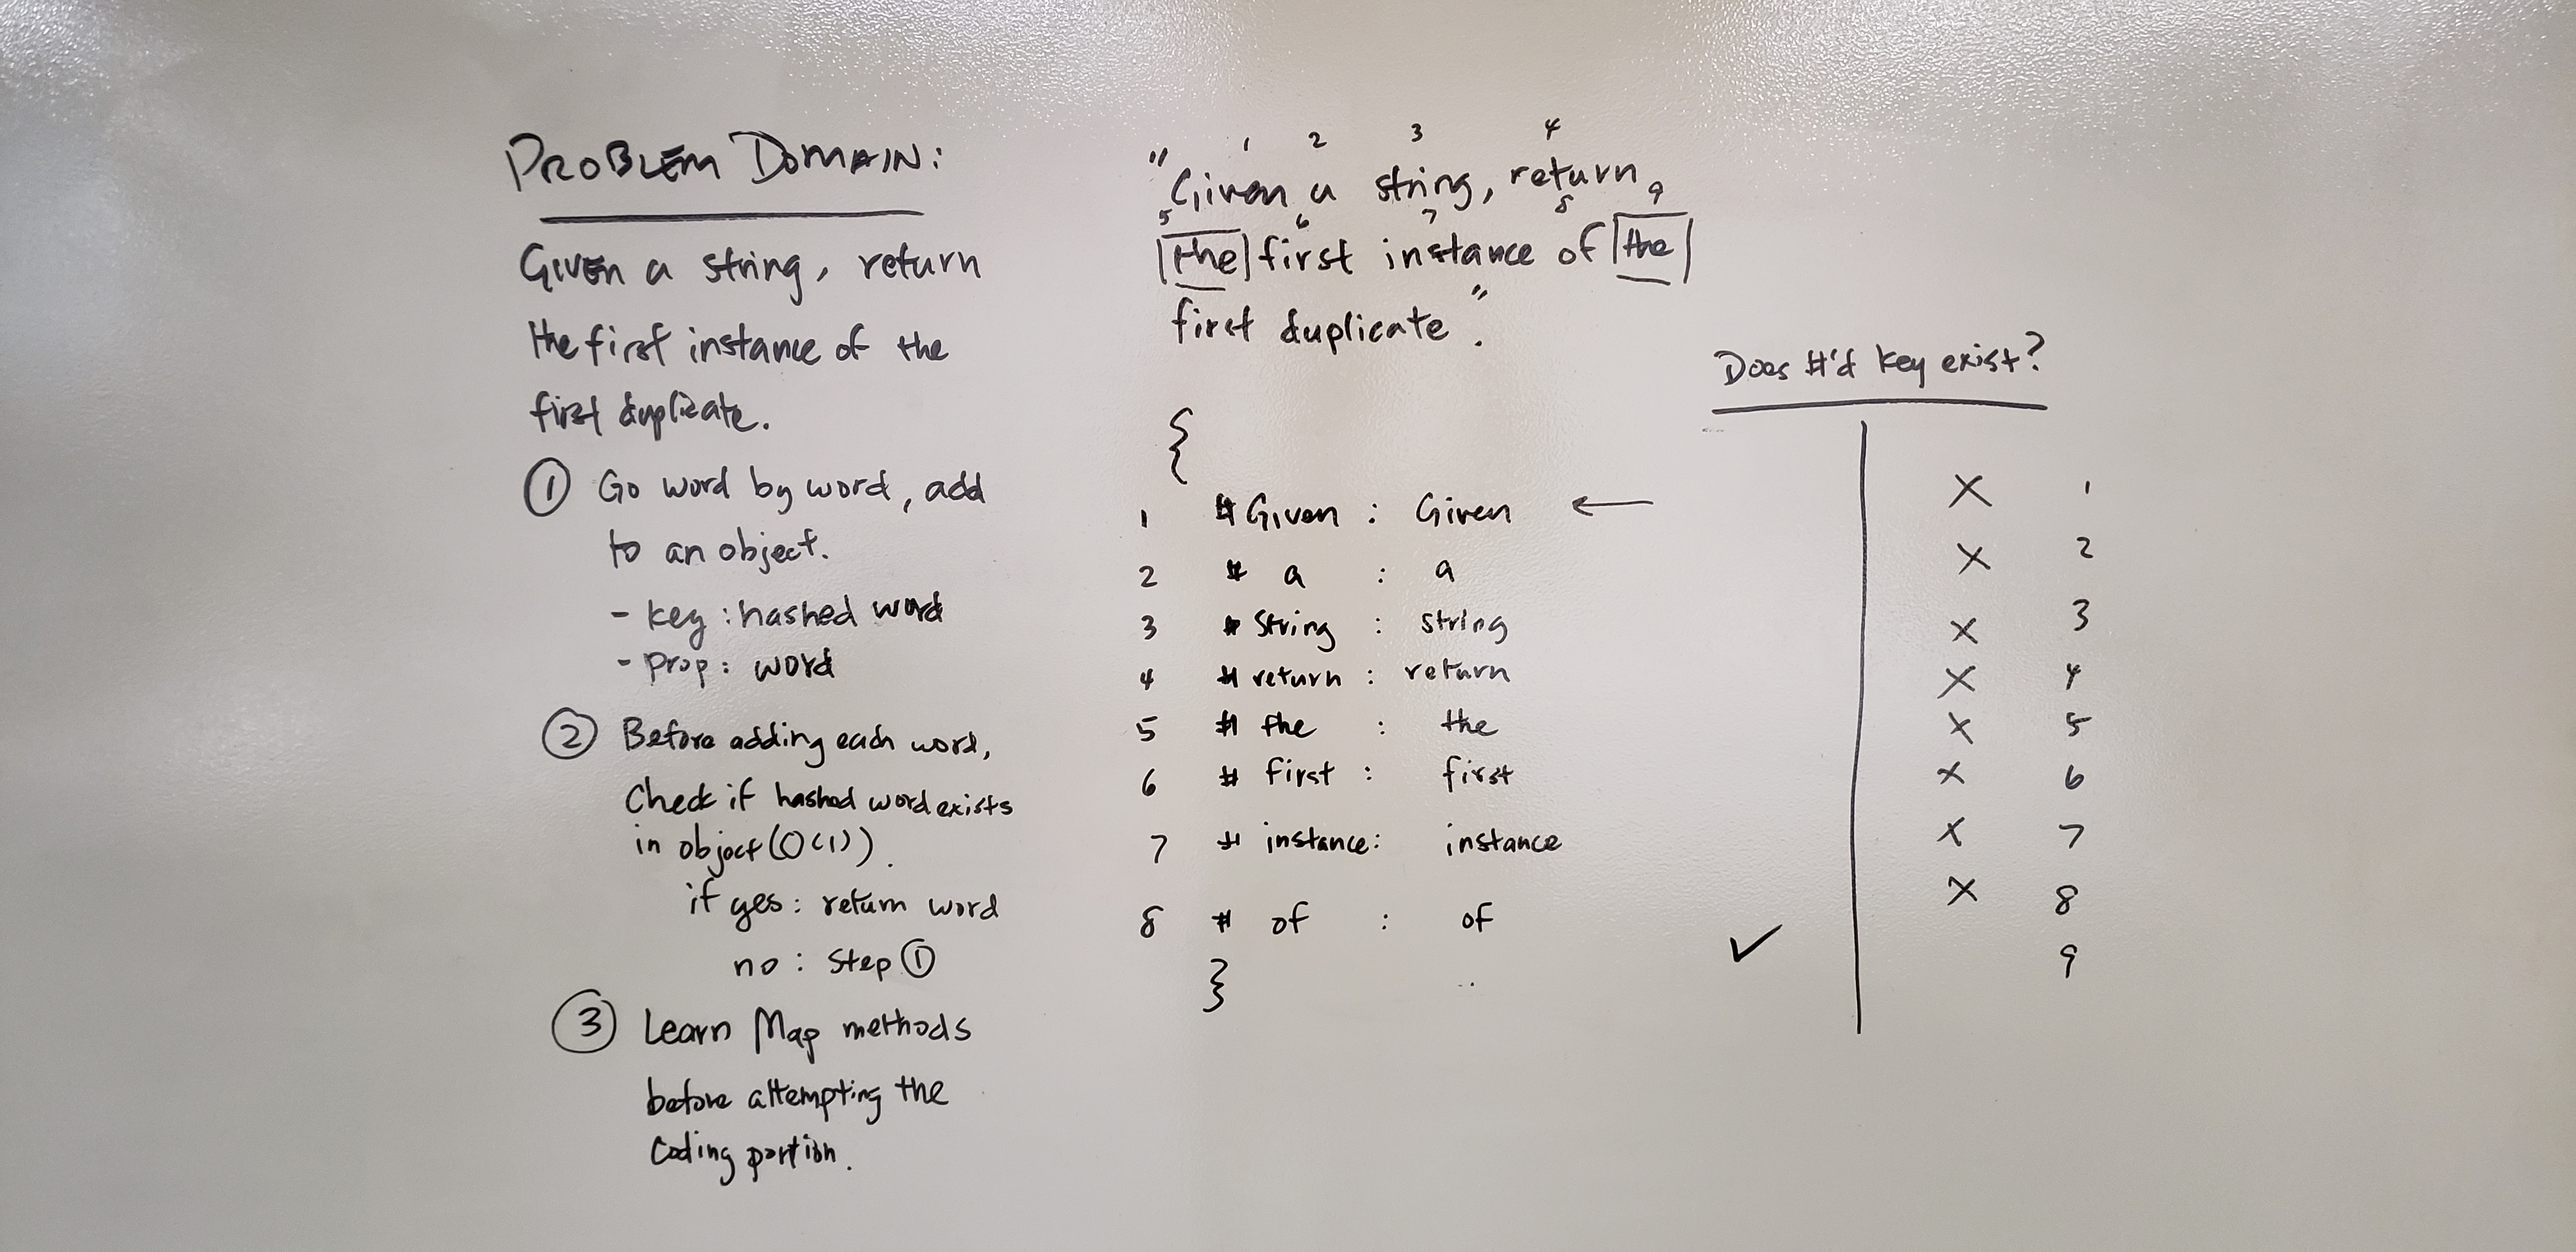 PROBLEM DOMAIN:
Given a string, return
the first instance of the
first duplicate.
① Go word by word, add
to an object.
- key : hashed word
- prop : word
② Before adding each word,
Check if hashed word exists
in object (O(1)).
if yes : return word
no : Step ①
③ Learn Map methods
before attempting the
Coding portion.
1 2 3 4
"Given a string, return
5 6 7 8 9
the first instance of the
first duplicate".
{
1 # Given : Given ←
2 # a : a
3 # String : string
4 # return : return
5 # the : the
6 # first : first
7 # instance : instance
8 # of : of
}
Does #'d key exist?
X 1
X 2
X 3
X 4
X 5
X 6
X 7
X 8
✓ 9